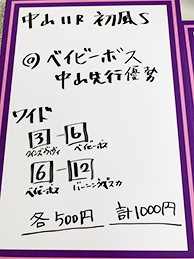 中山11R 初風S
◎ベイビーボス
中山先行優勢
ワイド
3-6
クインズヴィヴィ ベイビーボス
6-12
ベイビーボス バーニングペスカ
各500円 計1000円